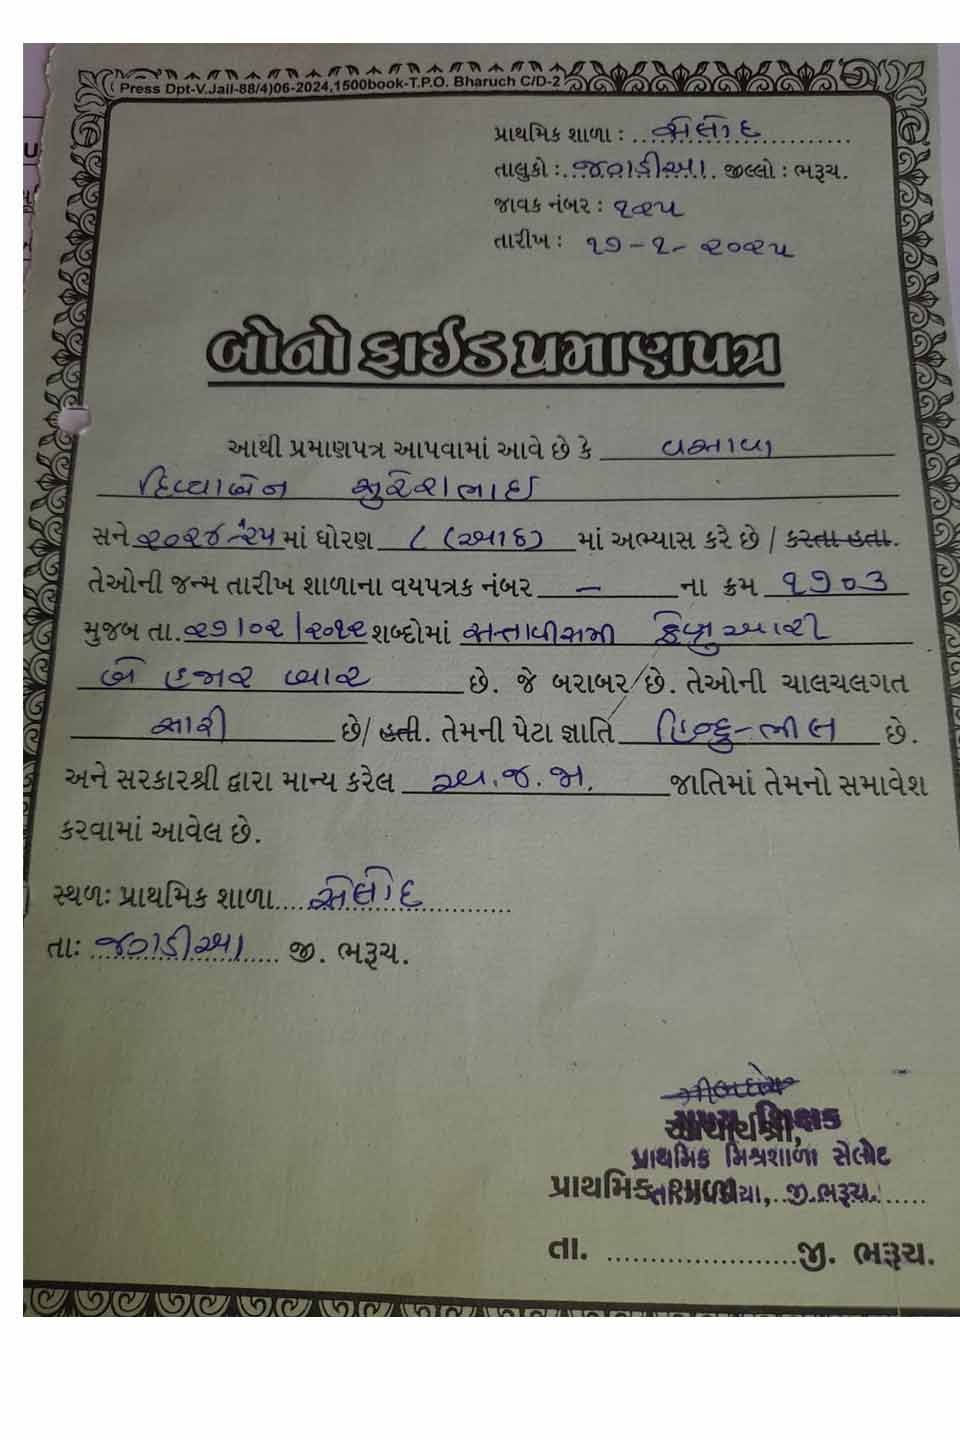 ( Press Dpt-V.Jail-88/4)06-2024,1500book-T.P.O. Bharuch C/D-2
પ્રાથમિક શાળા : સેલોદ
તાલુકો : જગડીઆ. જીલ્લો : ભરૂચ.
જાવક નંબર : ૧૨૫
તારીખ : ૧૭-૧-૨૦૨૫
બોનોફાઈડ પ્રમાણપત્ર
આથી પ્રમાણપત્ર આપવામાં આવે છે કે વસાવા
દિવ્યાબેન સુરેશભાઈ
સને ૨૦૨૪-૨૫ માં ધોરણ ૮ (આઠ) માં અભ્યાસ કરે છે / કરતા હતા.
તેઓની જન્મ તારીખ શાળાના વયપત્રક નંબર - ના ક્રમ ૧૭૦૩
મુજબ તા. ૨૭/૦૨/૨૦૧૨ શબ્દોમાં સત્તાવીસમી ફેબ્રુઆરી
બે હજાર બાર છે. જે બરાબર છે. તેઓની ચાલચલગત
સારી છે/ હતી. તેમની પેટા જ્ઞાતિ હિન્દુ-ભીલ છે.
અને સરકારશ્રી દ્વારા માન્ય કરેલ અ.જ.જા. જાતિમાં તેમનો સમાવેશ
કરવામાં આવેલ છે.
સ્થળઃ પ્રાથમિક શાળા સેલોદ
તાઃ જગડીઆ જી. ભરૂચ.
મુખ્ય શિક્ષક
આચાર્યશ્રી,
પ્રાથમિક મિશ્રશાળા સેલોદ
પ્રાથમિક શાળા
જી.ભરૂચ.
તા. જી. ભરૂચ.